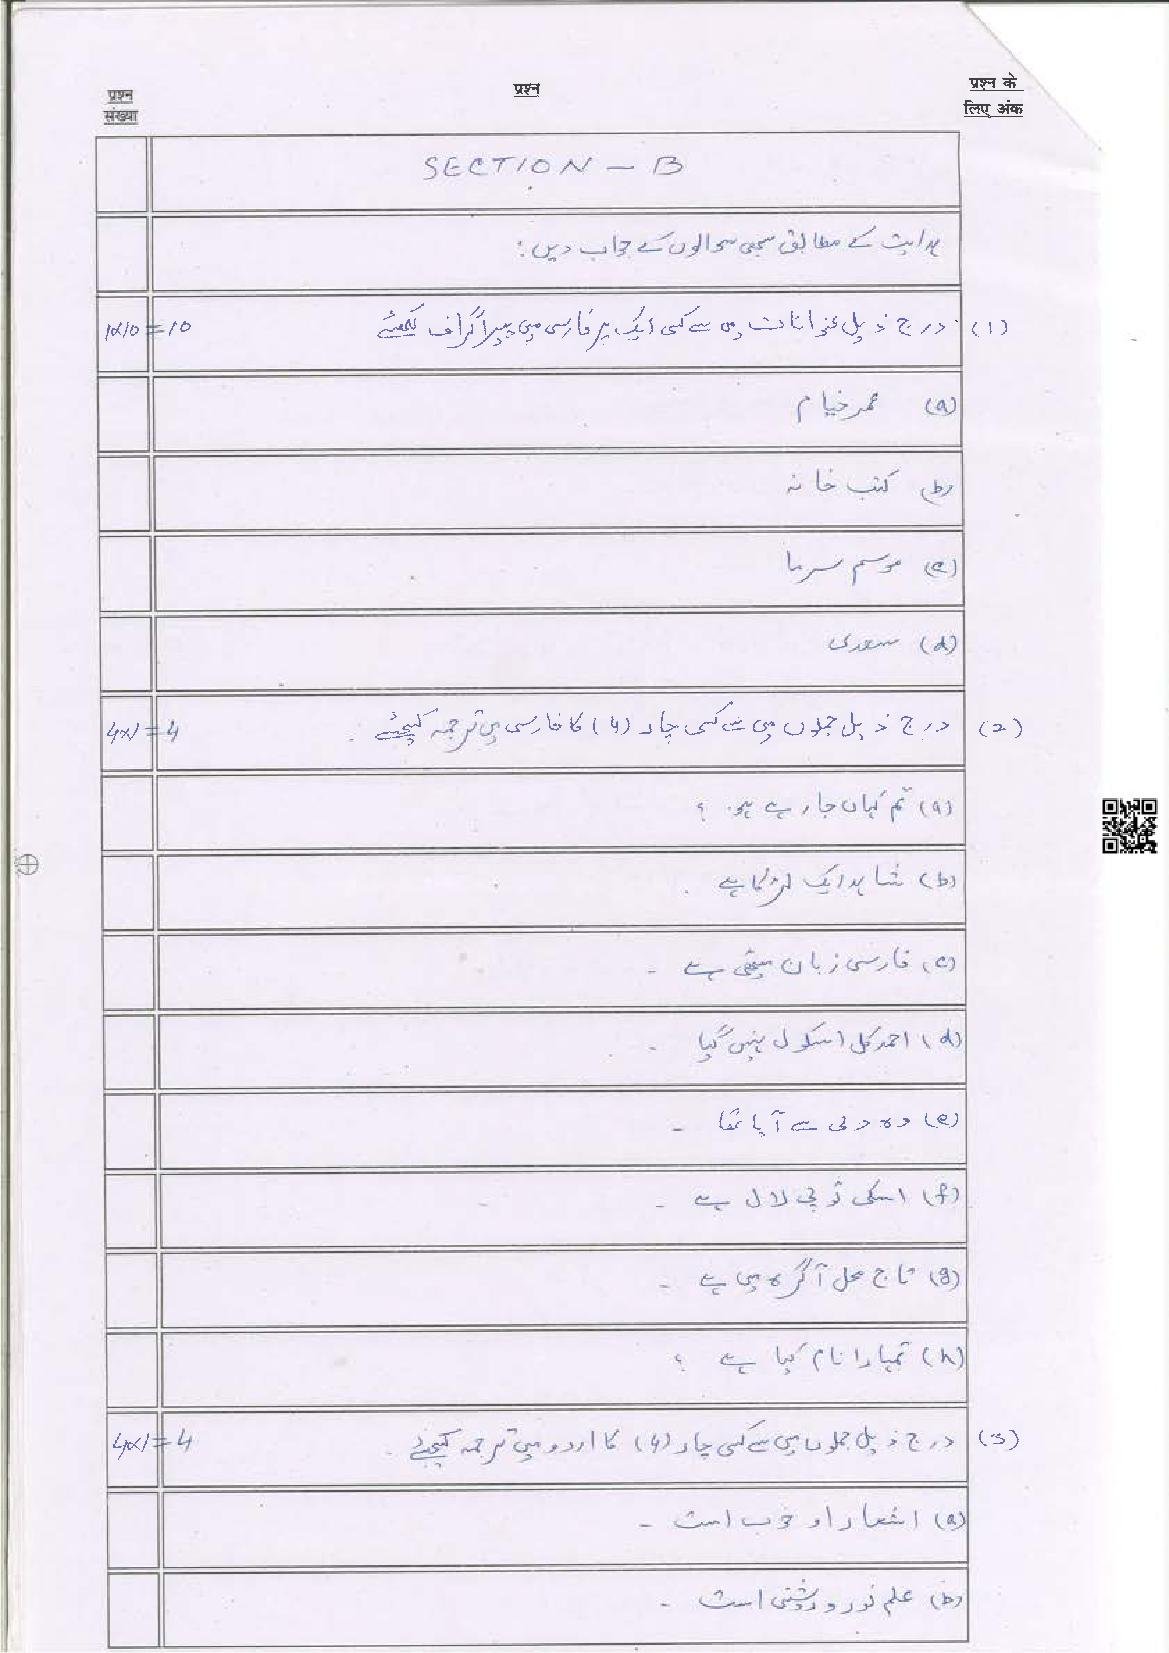 प्रश्न संख्या
प्रश्न
प्रश्न के लिए अंक
SECTION - B
ہدایت کے مطابق سبھی سوالوں کے جواب دیں:
(1) درج ذیل عنوانات میں سے کسی ایک پر فارسی میں پیراگراف لکھئے 1x10=10
(a) عمر خیام
(b) کتب خانہ
(c) موسم سرما
(d) سعدی
(2) درج ذیل جملوں میں سے کسی چار (4) کا فارسی میں ترجمہ کیجئے۔ 4x1=4
(a) تم کہاں جا رہے ہو؟
(b) شاہد ایک لڑکا ہے۔
(c) فارسی زبان میٹھی ہے۔
(d) احمد کل اسکول نہیں گیا۔
(e) وہ دلی سے آیا تھا۔
(f) اسکی ٹوپی لال ہے۔
(g) تاج محل آگرہ میں ہے۔
(h) تمہارا نام کیا ہے؟
(3) درج ذیل جملوں میں سے کسی چار (4) کا اردو میں ترجمہ کیجئے۔ 4x1=4
(a) اشعار او خوب است۔
(b) علم نور و روشنی است۔